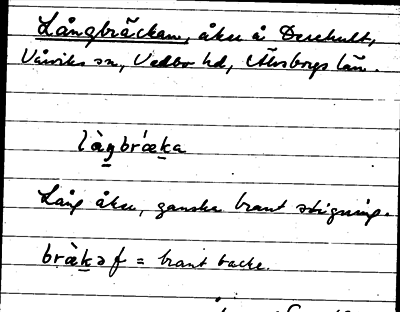 Långbräckan, åker å Derehult,
Vårviks sn, Vedbo hd, Älvsborgs län.
làŋbræ̀ka
Lång åker, ganska brant stigning.
bræ̀kə f = brant backe.